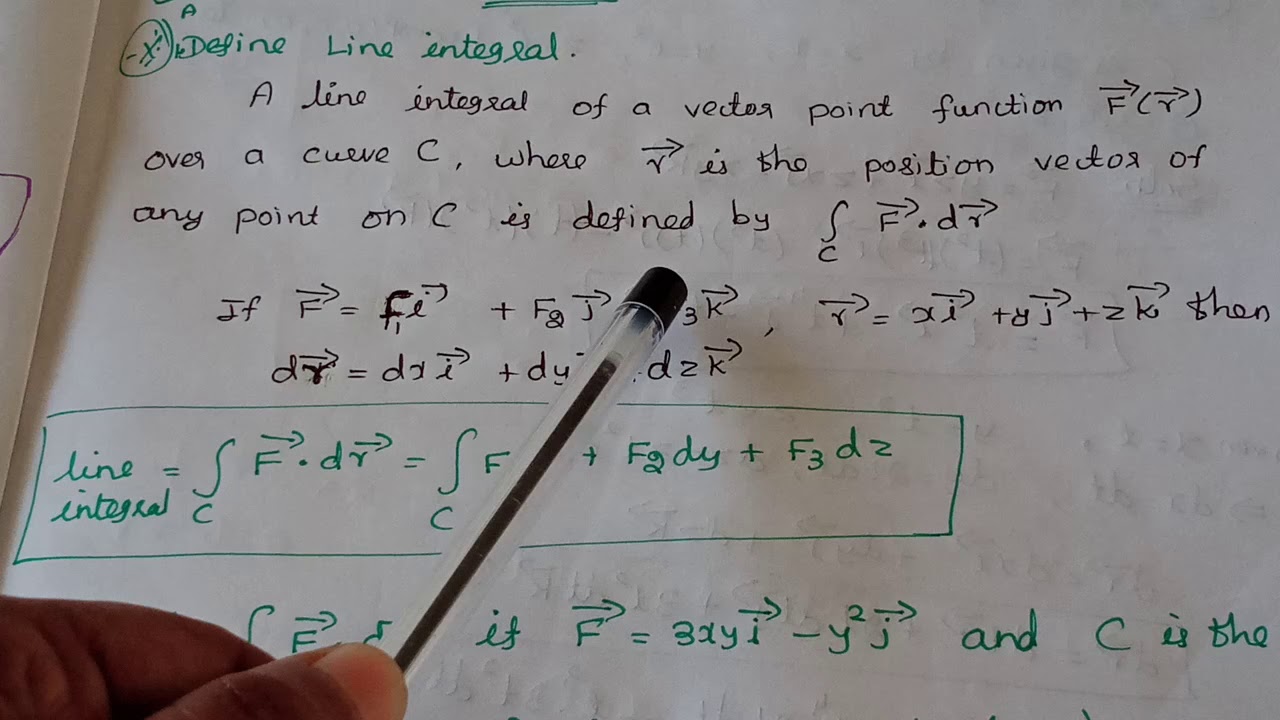 A
Define Line integral.
A line integral of a vector point function F⃗(r⃗)
over a curve C, where r⃗ is the position vector of
any point on C is defined by ∫_C F⃗.dr⃗
If F⃗ = F₁i⃗ + F₂j⃗ ₃k⃗, r⃗ = xi⃗ + yj⃗ + zk⃗ then
dr⃗ = dxi⃗ + dy dzk⃗
line integral = ∫_C F⃗.dr⃗ = ∫_C F + F₂dy + F₃dz
∫ F⃗ if F⃗ = 3xyi⃗ - y²j⃗ and C is the